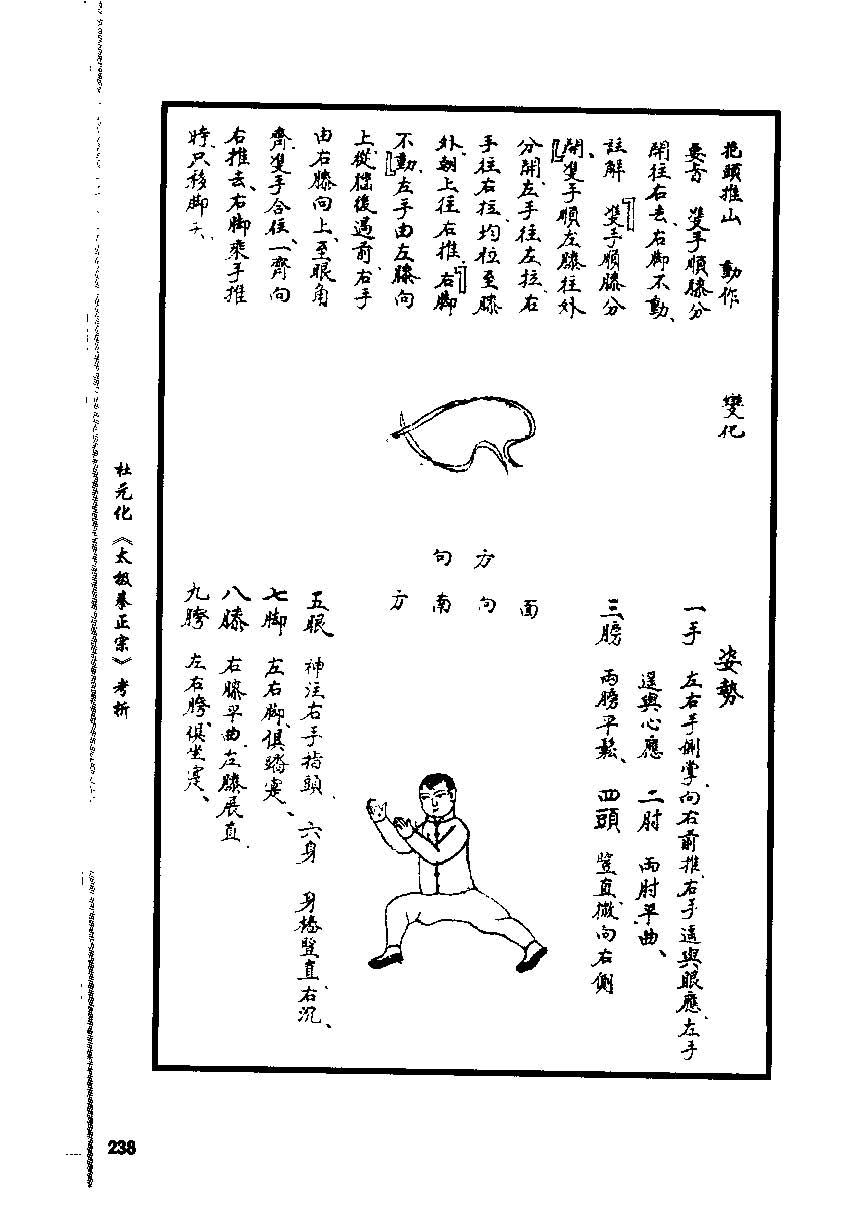 抱頭推山　動作　變化
要旨　雙手順膝分
開往右去、右脚不動、
註解　『雙手順膝分
開、』雙手順左膝往外
分開、左手往左拉、右
手往右拉、均拉至膝
外、朝上往右推、『右脚
不動、』左手由左膝向
上、從檔後過前、右手
由右膝向上、至眼角
齊、雙手合住、一齊向
右推去、右脚乘手推
時、只移脚尖、
面
方向
向南
方
姿勢
一手　左右手側掌、向右前推、右手遙與眼應、左手
遙與心應　二肘　兩肘平曲、
三膀　兩膀平鬆、四頭　豎直微向右側
五眼　神注右手指頭、六身　身樁豎直、右沉、
七脚　左右脚、俱踏實、
八膝　右膝平曲、左膝展直、
九胯　左右胯、俱坐實、
杜元化《太极拳正宗》考析
238